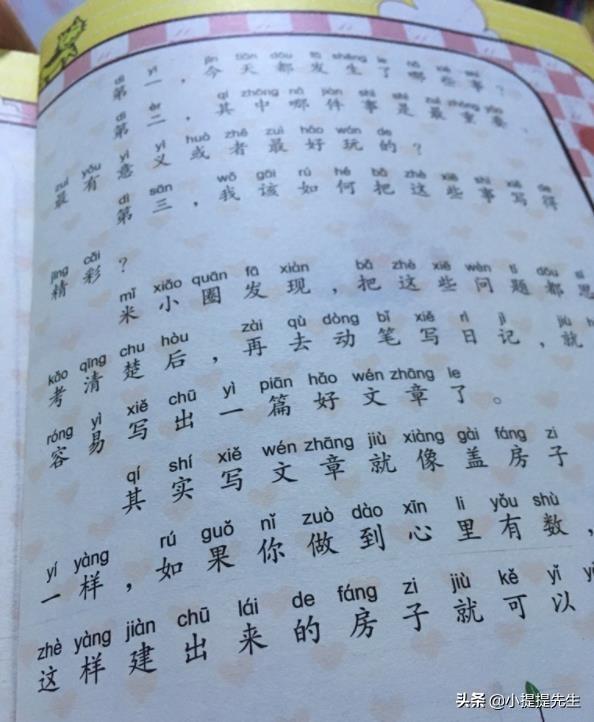 dì yī jīn tiān dōu fā shēng le nǎ xiē shì
第一，今天都发生了哪些事？
dì èr qí zhōng nǎ jiàn shì shì zuì zhòng yào
第二，其中哪件事是最重要、
zuì yǒu yì yì huò zhě zuì hǎo wán de
最有意义或者最好玩的？
dì sān wǒ gāi rú hé bǎ zhè xiē shì xiě de
第三，我该如何把这些事写得
jīng cǎi
精彩？
mǐ xiǎo quān fā xiàn bǎ zhè xiē wèn tí dōu sī
米小圈发现，把这些问题都思
kǎo qīng chu hòu zài qù dòng bǐ xiě rì jì jiù
考清楚后，再去动笔写日记，就
róng yì xiě chū yì piān hǎo wén zhāng le
容易写出一篇好文章了。
qí shí xiě wén zhāng jiù xiàng gài fáng zi
其实写文章就像盖房子
yí yàng rú guǒ nǐ zuò dào xīn li yǒu shù
一样，如果你做到心里有数，
zhè yàng jiàn chū lái de fáng zi jiù kě yǐ
这样建出来的房子就可以
头条 @小提提先生